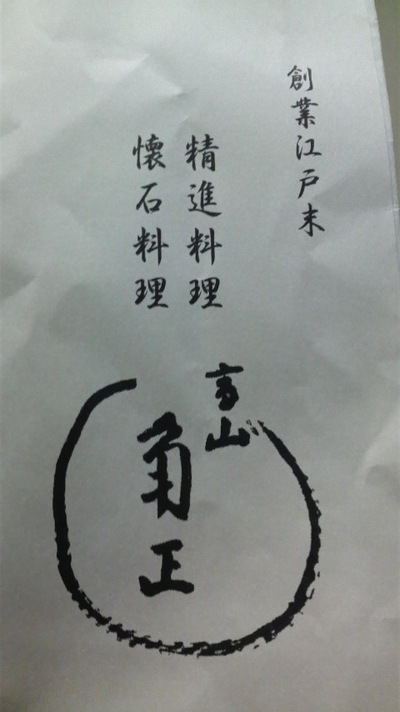 創業江戸末
精進料理
懐石料理
高山
角正